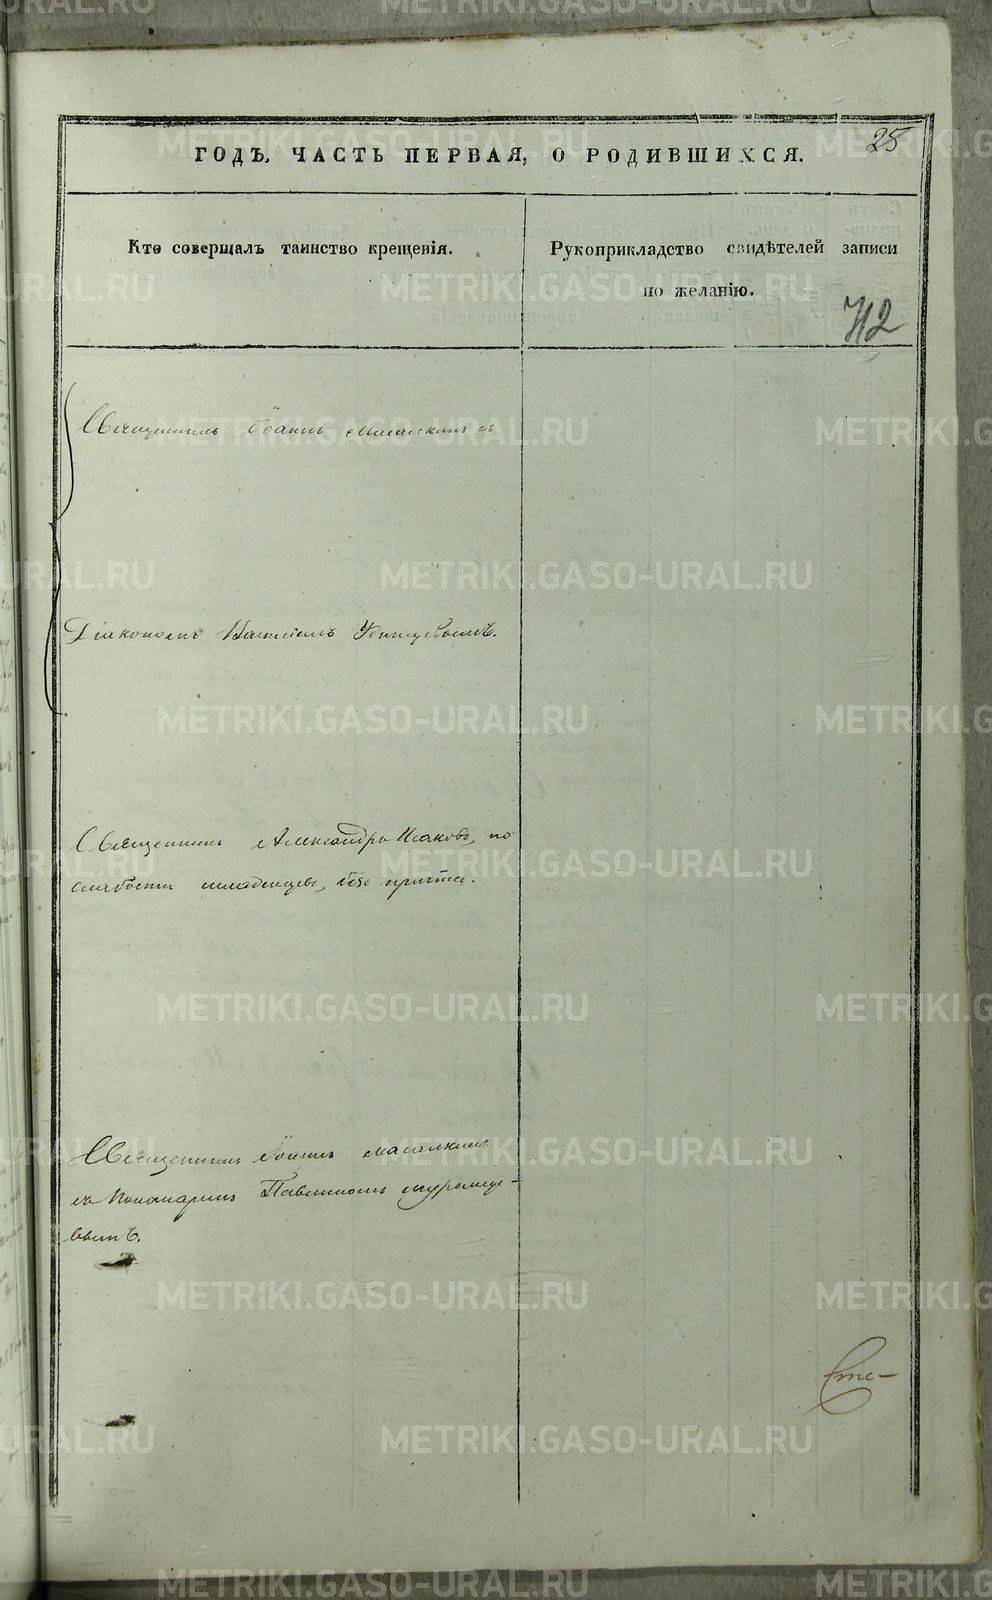 25
ГОДЪ, ЧАСТЬ ПЕРВАЯ, О РОДИВШИХСЯ.
Кто совершалъ таинство крещенія.
Рукоприкладство свидѣтелей записи
по желанію.
712
Священникъ Іоаннъ съ
Діакономъ
Священникъ Александръ Исаковъ, по
слабости младенцевъ, безъ причта.
Священникъ Іоаннъ
съ Пономаремъ
вымъ.
METRIKI.GASO-URAL.RU